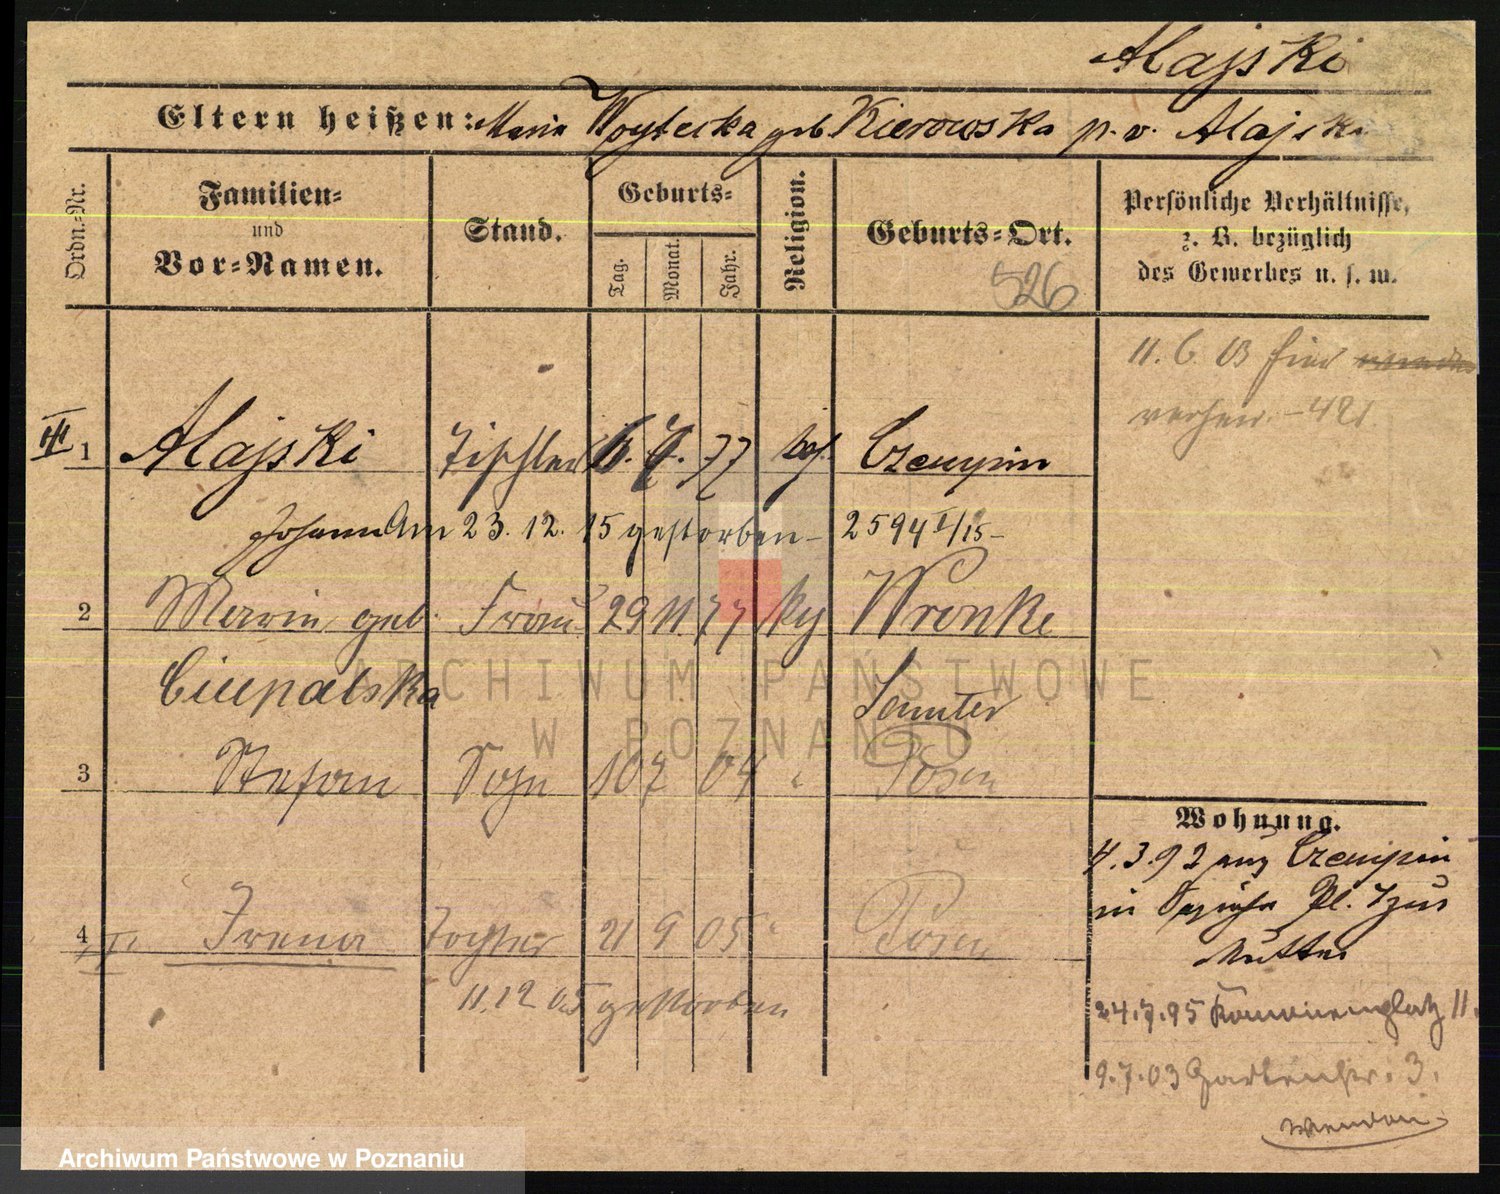 Alajski
Eltern heißen: Maria Woytecka geb Kierowska p. v. Alajski
Ordn.=Nr.
Familien= und Vor=Namen.
Stand.
Geburts=
Tag. Monat. Jahr.
Religion.
Geburts=Ort.
526
Persönliche Verhältnisse,
z. B. bezüglich
des Gewerbes u. s. w.
11. 6 03
III 1 Alajski Tischler 6. 7. 77 Czempin
Johann Am 23. 12. 15 gestorben - 2594 I/15 -
2 geb. Frau 29 11 77 Wronke
Samter
3 Stefan Sohn 10 7 04 " Posen
4 Irena Tochter 21 9 05 " Posen
11 12 05 gestorben
Wohnung.
4. 3. 92 aus Czempin
in
Mutter
24. 7. 95 11.
9. 7. 03 Gartenstr. 3.
wenden
ARCHIWUM PAŃSTWOWE
W POZNANIU
Archiwum Państwowe w Poznaniu